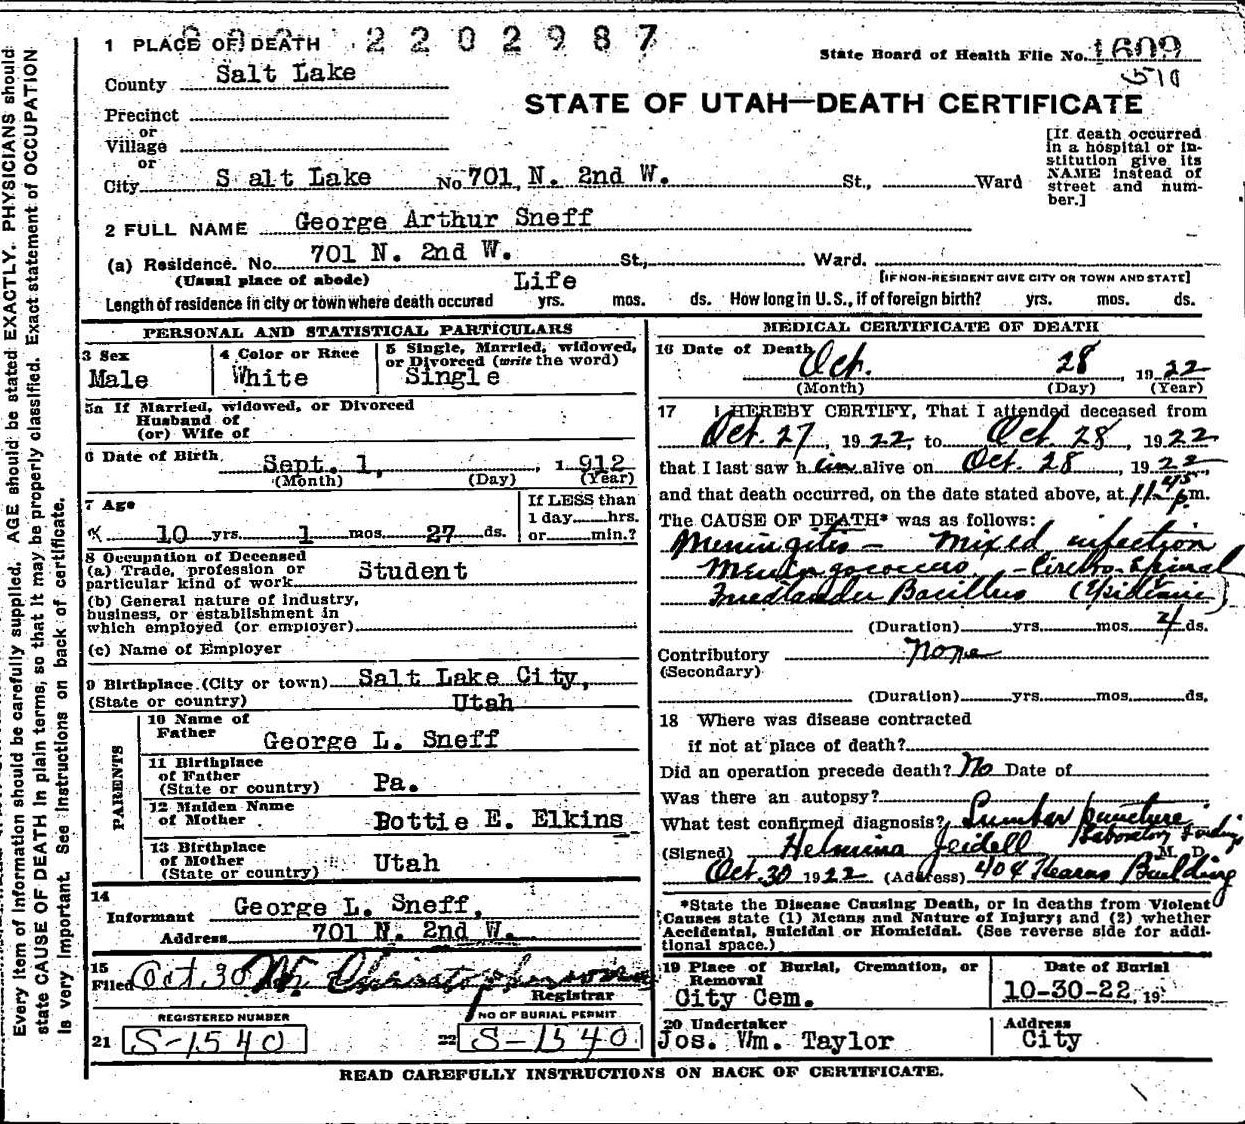 2202987
1 PLACE OF DEATH
State Board of Health File No. 1609
510
County Salt Lake
STATE OF UTAH—DEATH CERTIFICATE
Precinct
or
Village
or
City S alt Lake No 701, N. 2nd W. St., Ward
[If death occurred in a hospital or institution give its NAME instead of street and number.]
2 FULL NAME George Arthur Sneff
(a) Residence. No. 701 N. 2nd W. St., Ward.
(Usual place of abode) [IF NON-RESIDENT GIVE CITY OR TOWN AND STATE]
Life
Length of residence in city or town where death occured yrs. mos. ds. How long in U.S., if of foreign birth? yrs. mos. ds.
PERSONAL AND STATISTICAL PARTICULARS
3 Sex
Male
4 Color or Race
White
5 Single, Married, widowed,
or Divorced (write the word)
Single
5a If Married, widowed, or Divorced
Husband of
(or) Wife of
6 Date of Birth Sept. 1, 1 912
(Month) (Day) (Year)
7 Age
10 yrs. 1 mos. 27 ds.
If LESS than
1 day hrs.
or min.?
8 Occupation of Deceased
(a) Trade, profession or
particular kind of work Student
(b) General nature of industry,
business, or establishment in
which employed (or employer)
(c) Name of Employer
9 Birthplace (City or town) Salt Lake City,
(State or country) Utah
PARENTS
10 Name of
Father
George L. Sneff
11 Birthplace
of Father
(State or country) Pa.
12 Maiden Name
of Mother Bottie E. Elkins
13 Birthplace
of Mother
(State or country) Utah
14
Informant George L. Sneff,
Address 701 N. 2nd W.
15
Filed Oct. 30
Registrar
REGISTERED NUMBER
21 S-1540
NO OF BURIAL PERMIT
22 S-1540
MEDICAL CERTIFICATE OF DEATH
16 Date of Death Oct. 28 1922
(Month) (Day) (Year)
17 I HEREBY CERTIFY, That I attended deceased from
Oct. 27, 1922 to Oct. 28, 1922
that I last saw h im alive on Oct. 28, 1922,
and that death occurred, on the date stated above, at 11 45 p.m.
The CAUSE OF DEATH* was as follows:
Meningitis — mixed infection
Meningococcus — Cerebro-Spinal
Friedlander Bacillus (Epidemic)
(Duration) yrs. mos. 4 ds.
Contributory none
(Secondary)
(Duration) yrs. mos. ds.
18 Where was disease contracted
if not at place of death?
Did an operation precede death? No Date of
Was there an autopsy?
What test confirmed diagnosis? Lumbar puncture
Laboratory findings
(Signed) Helmina Jeidell M. D.
Oct 30 1922 (Address) 404 Kearns Building
*State the Disease Causing Death, or in deaths from Violent
Causes state (1) Means and Nature of Injury; and (2) whether
Accidental, Suicidal or Homicidal. (See reverse side for addi-
tional space.)
19 Place of Burial, Cremation, or
Removal
City Cem.
Date of Burial
10-30-22, 19
20 Undertaker
Jos. Wm. Taylor
Address
City
READ CAREFULLY INSTRUCTIONS ON BACK OF CERTIFICATE.
Every item of information should be carefully supplied. AGE should be stated EXACTLY. PHYSICIANS should
state CAUSE OF DEATH in plain terms, so that it may be properly classified. Exact statement of OCCUPATION
is very important. See instructions on back of certificate.